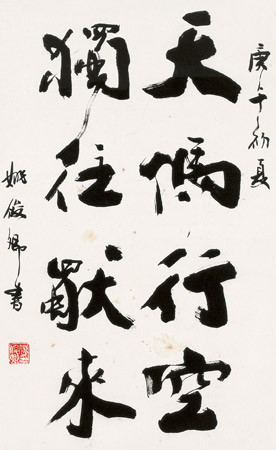 庚午初夏
天馬行空
獨往獨來
姚俊卿書